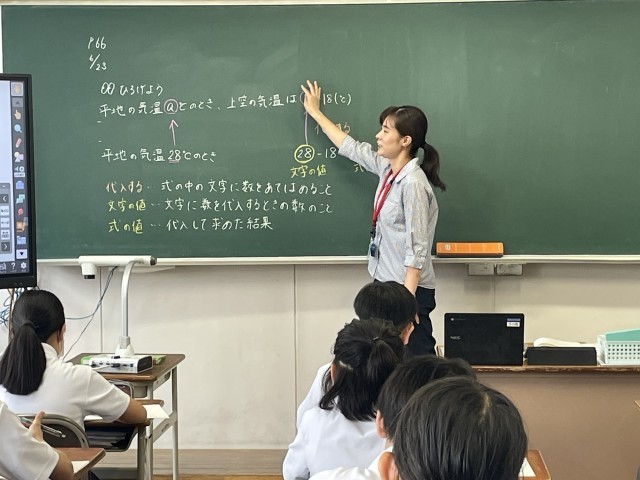 P66
ひろげよう
平地の気温aとのとき、上空の気温は 18(℃)
代入する
平地の気温28℃のとき
28-18
文字の値
代入する… 式の中の文字に数をあてはめること
文字の値… 文字に数を代入するときの数のこと
式の値 … 代入して求めた結果